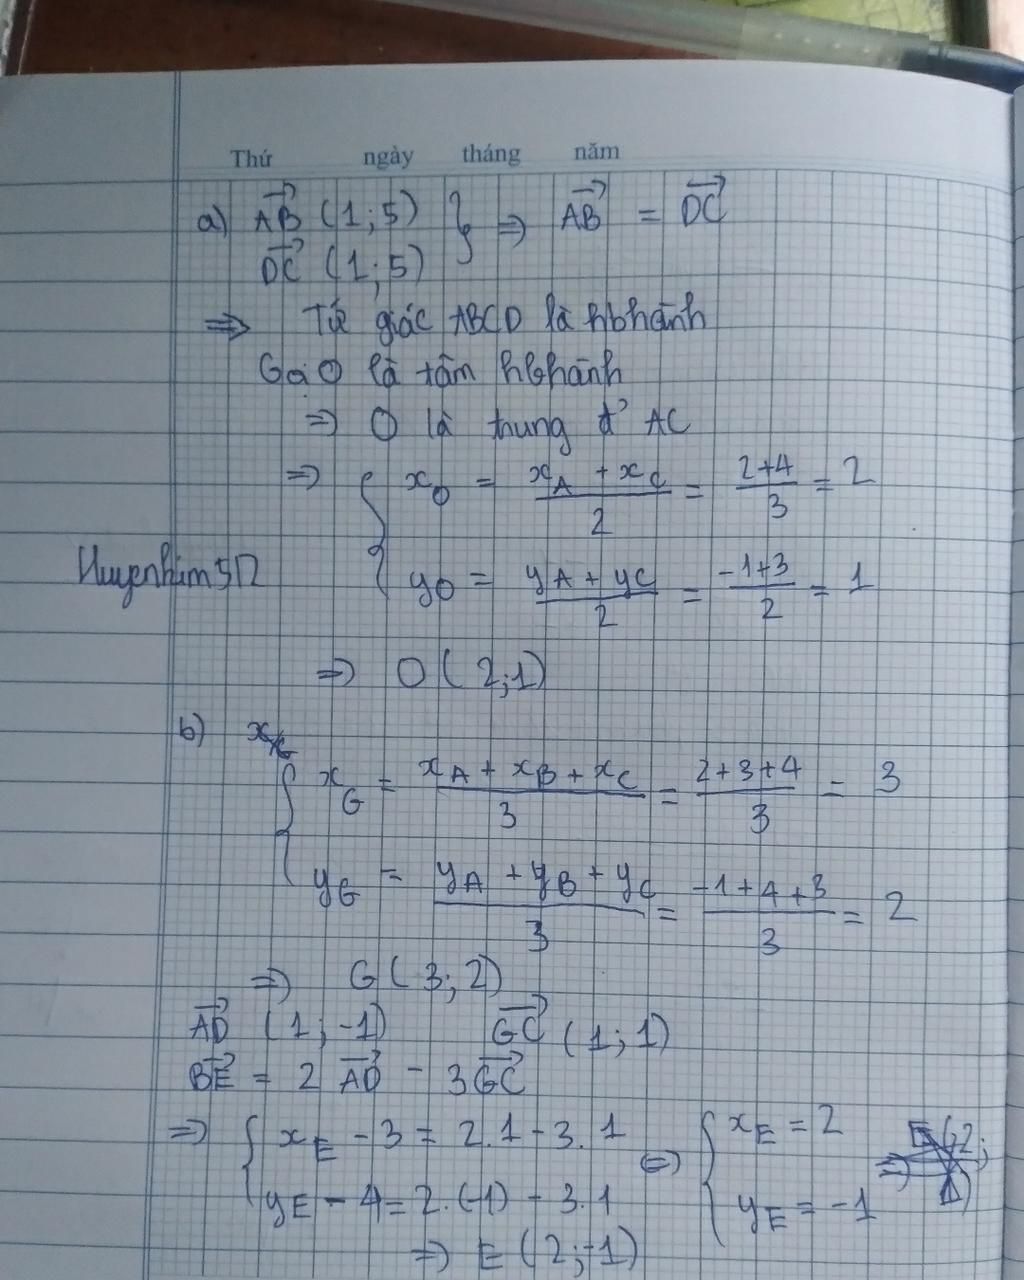 Thứ ngày tháng năm
a) AB (1;5) } => AB = DC
DC (1;5)
=> Tứ giác ABCD là hbhành
Gọi O là tâm hbhành
=> O là trung đ' AC
=> { xO = (xA + xC)/2 = (2+4)/3 = 2
Huyenhim517
yO = (yA + yC)/2 = (-1+3)/2 = 1
=> O (2;1)
b)
{ xG = (xA + xB + xC)/3 = (2+3+4)/3 = 3
yG = (yA + yB + yC)/3 = (-1+4+3)/3 = 2
=> G (3;2)
AD (1;-1) GC (1;1)
BE = 2 AD - 3 GC
=> { xE - 3 = 2.1 - 3.1 <=> { xE = 2
yE - 4 = 2.(-1) - 3.1 yE = -1
=> E (2;-1)